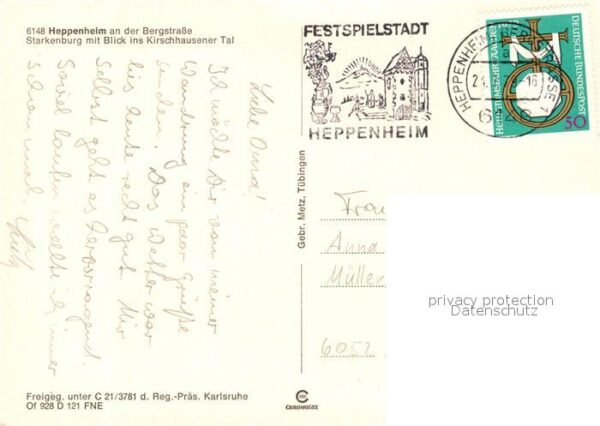 6148 Heppenheim an der Bergstraße
Starkenburg mit Blick ins Kirschhausener Tal
Liebe Anna!
Ich wollte Dir von meiner
Wandrung ein paar Grüße
senden. Das Wetter war
bis heute recht gut. Mir
Selbst geht es hervorragend.
Soviel laufen wollte ich immer
schon mal.
Freigeg. unter C 21/3781 d. Reg.-Präs. Karlsruhe
Of 928 D 121 FNE
Gebr. Metz, Tübingen
CHROMOLUX
FESTSPIELSTADT
HEPPENHEIM
HEPPENHEIM
DEUTSCHE BUNDESPOST
50
Frau
Anna
Müller
6052
privacy protection
Datenschutz